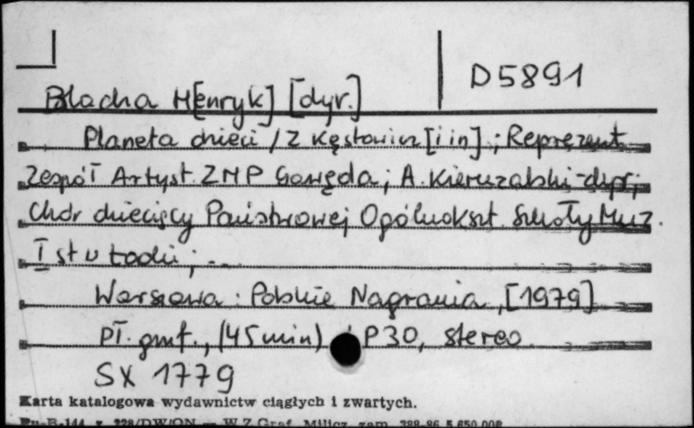 D5891
Blacha H[enryk] [dyr.]
Planeta dzieci / Z Kęstowicz [i in].; Reprezent.
Zespół Artyst. ZHP Gawęda; A. Kieruzalski-dyr.;
Chór dziecięcy Państwowej Ogólnokszt. Szkoły Muz.
I st w Łodzi; ...
Warszawa : Polskie Nagrania, [1979]
Pł. gmf., (45 min) ; P30, stereo
SX 1779
Karta katalogowa wydawnictw ciągłych i zwartych.
Pu-B-144 z. 228/DW/ON — W.Z.Graf. Milicz, zam. 388-86 5.650.000